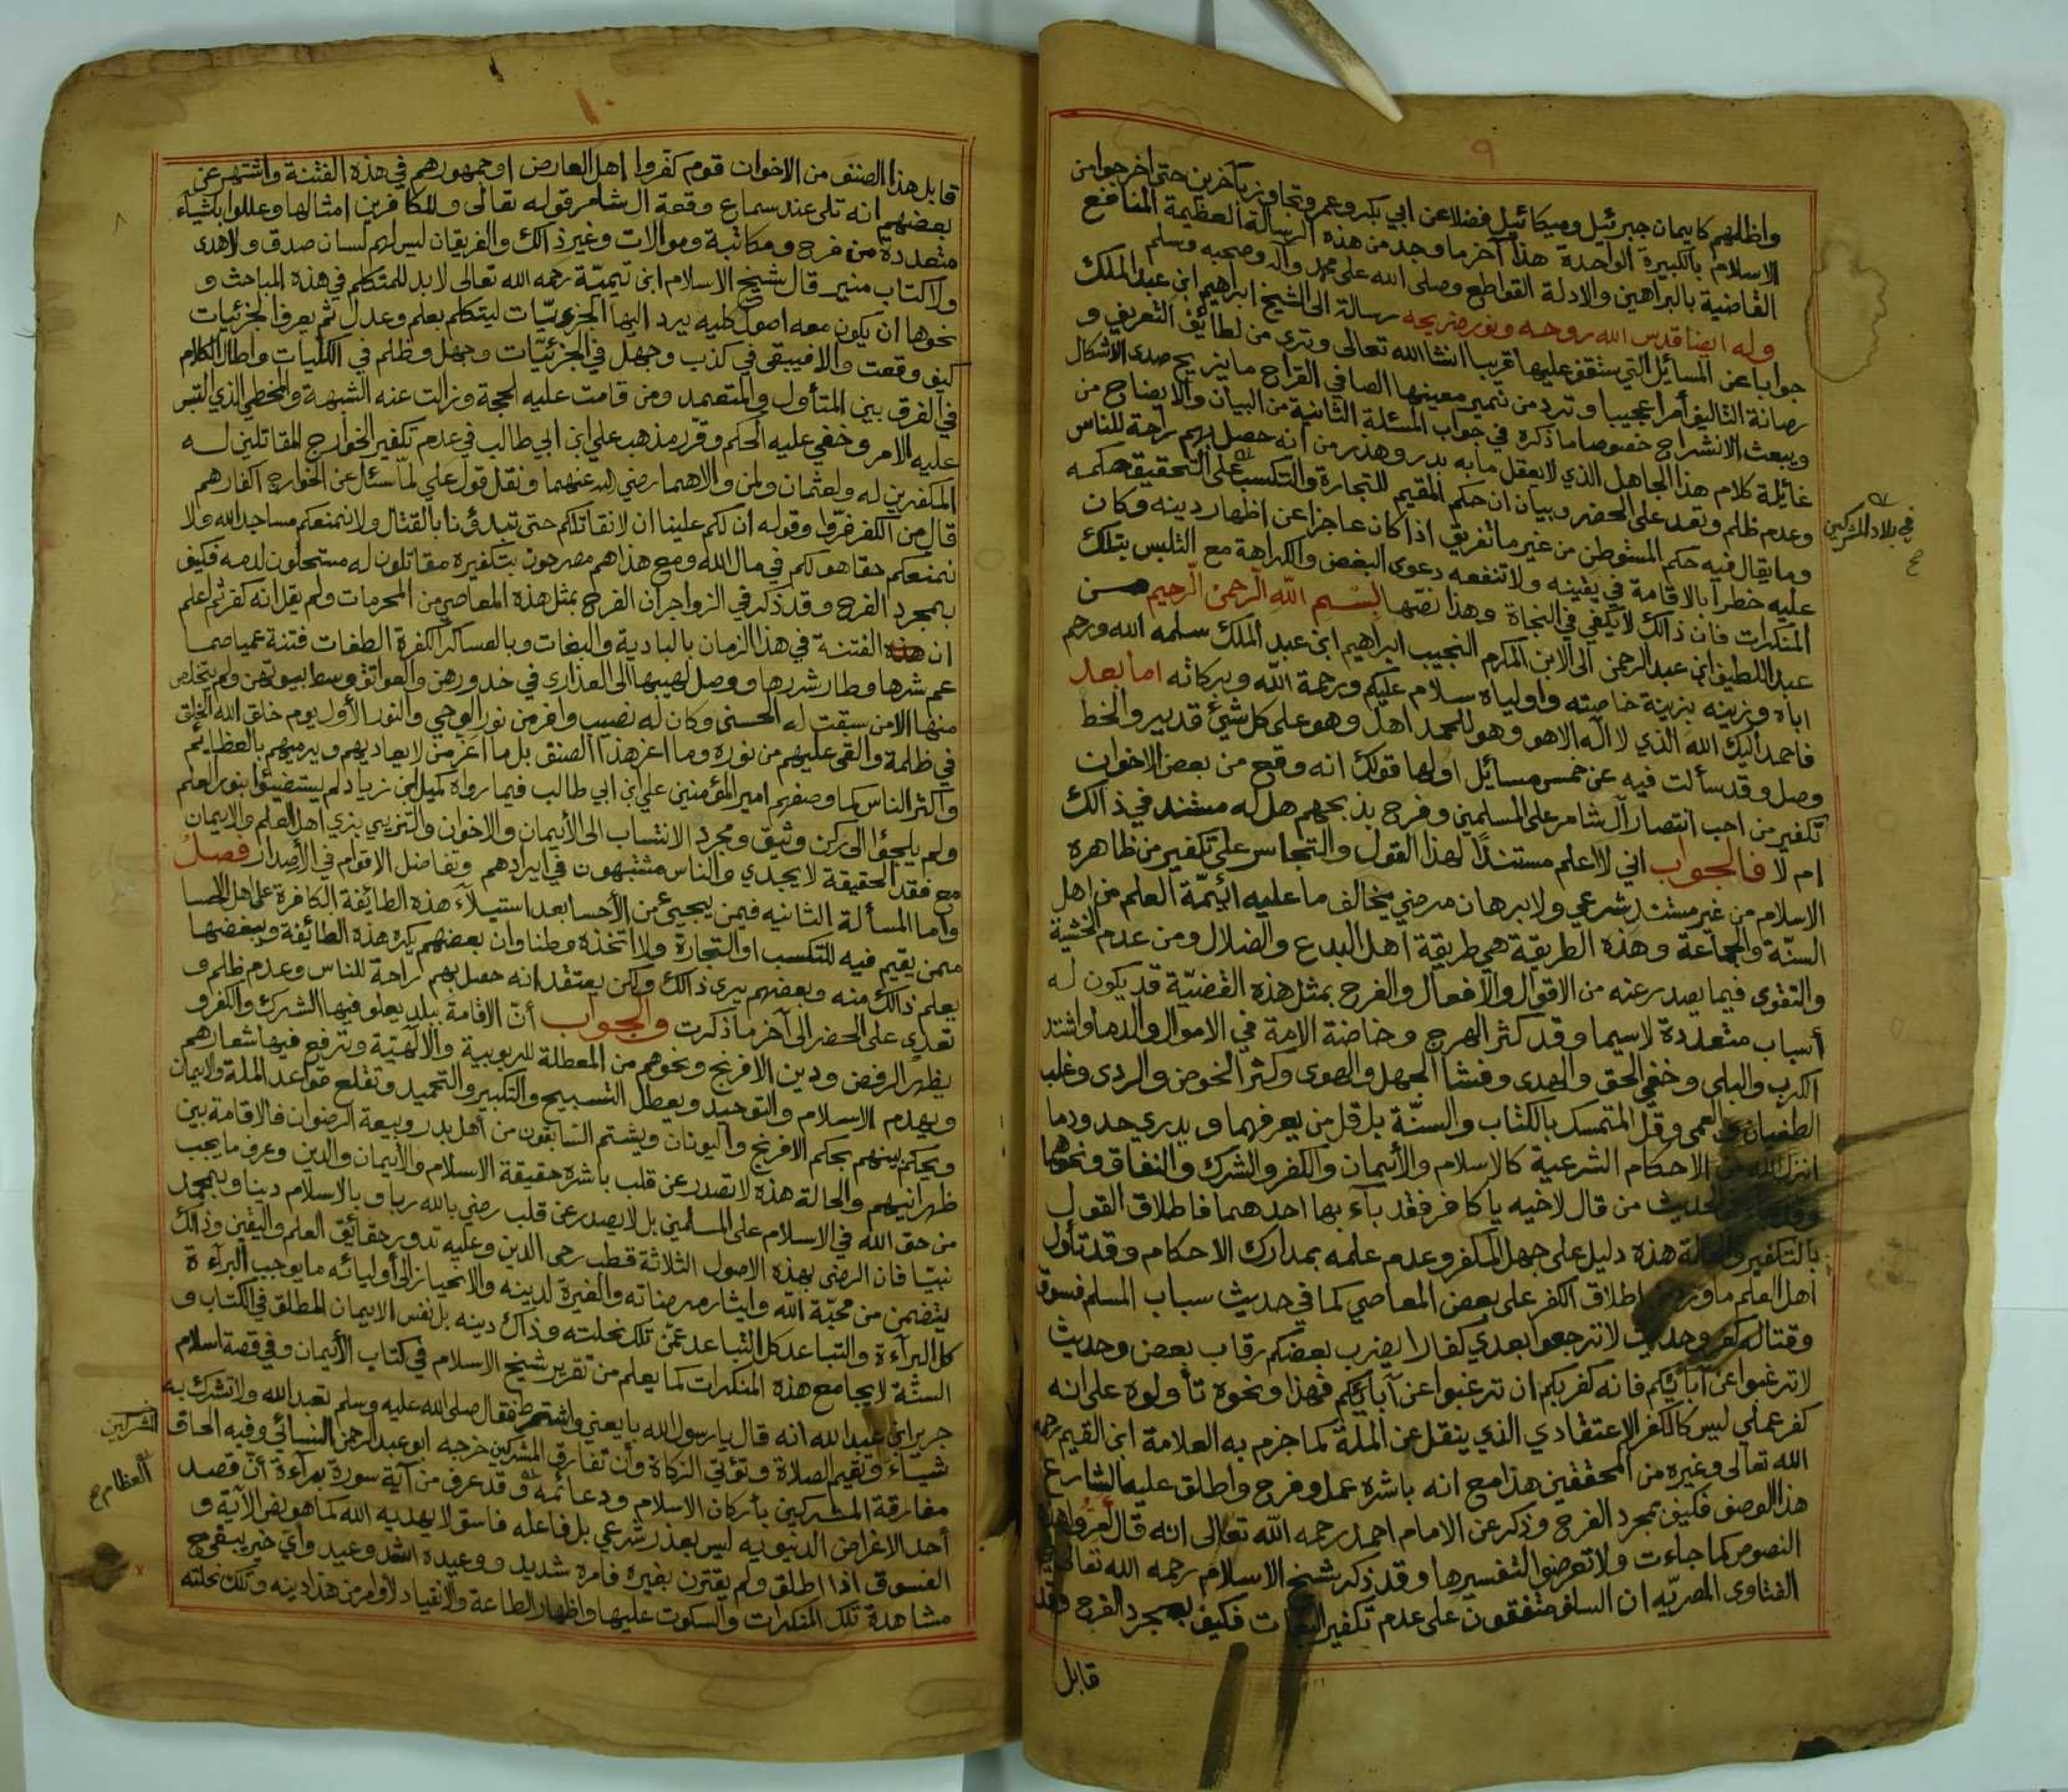 ٩
واظلهم كايمان جبرئيل وميكائيل فضلا عن ابي بكر وعمر وتجاوز بآخرين حتى اخرجوا من
الاسلام بالكبيرة الواحدة هذا آخر ما وجد من هذه الرسالة العظيمة المنافع
القاضية بالبراهين والادلة القواطع وصلى الله على محمد وآله وصحبه وسلم
وله ايضا قدس الله روحه ونور ضريحه رسالة الى الشيخ ابراهيم ابن عبد الملك
جوابا عن المسائل التي ستقف عليها قريبا انشا الله تعالى وترى من لطائف التعريف و
رصانة التاليف أمرا عجيبا وترد من نمير معينها الصافي القراح ما يزيح صدى الاشكال
ويبعث الانشراح خصوصا ما ذكره في جواب المسئلة الثانية من البيان والايضاح من
غائلة كلام هذا الجاهل الذي لا يعقل ما به بدر وهذر من انه حصل بهم راحة للناس
وعدم ظلم وتعد على الحضر وبيان ان حكم المقيم للتجارة والتكسب على التحقيق حكمه
في بلاد المشركين
وما يقال فيه حكم المستوطن من غير ما تفريق اذا كان عاجزا عن اظهار دينه وكان
عليه خطرا بالاقامة في يقينه ولا تنفعه دعوى البغض والكراهة مع التلبس بتلك
المنكرات فان ذالك لا يكفي في النجاة وهذا نصها بسم الله الرحمن الرحيم من
عبد اللطيف ابن عبد الرحمن الى الابن المكرم النجيب ابراهيم ابن عبد الملك سلمه الله ورحم
اباه وزينه بزينة خاصته واولياه سلام عليكم ورحمة الله وبركاته اما بعد
فاحمد اليك الله الذي لا اله الا هو وهو للحمد اهل وهو على كل شيئ قدير والخط
وصل وقد سألت فيه عن خمس مسائل اولها قولك انه وقع من بعض الاخوان
تكفير من احب انتصار آل شامر على المسلمين وفرح بذبحهم هل له مستند في ذالك
ام لا فالجواب اني لا اعلم مستندا لهذا القول والتجاسر على تكفير من ظاهره
الاسلام من غير مستند شرعي ولا برهان مرضي يخالف ما عليه ائمة العلم من اهل
السنة والجماعة وهذه الطريقة هي طريقة اهل البدع والضلال ومن عدم الخشية
والتقوى فيما يصدر عنه من الاقوال والافعال والفرح بمثل هذه القضية قد يكون له
أسباب متعددة لاسيما وقد كثر الهرج وخاضة الامة في الاموال والدما واشتد
الكرب والبلى وخفي الحق والهدى وفشا الجهل والهوى وكثر الخوض والردى وغلب
الطغيان والعمى وقل المتمسك بالكتاب والسنة بل قل من يعرفهما ويدري حدود ما
انزل الله من الاحكام الشرعية كالاسلام والأيمان والكفر والشرك والنفاق ونحوها
الحديث من قال لاخيه يا كافر فقد بآء بها احدهما فاطلاق القول
بالتكفير والحالة هذه دليل على جهل المكفر وعدم علمه بمدارك الاحكام وقد تأول
أهل العلم ما ورد اطلاق الكفر على بعض المعاصي كما في حديث سباب المسلم فسوق
وقتاله كفر وحديث لا ترجعوا بعدي كفارا يضرب بعضكم رقاب بعض وحديث
لا ترغبوا عن آبائكم فانه كفر بكم ان ترغبوا عن آبائكم فهذا ونحوه تأولوه على انه
كفر عملي ليس كالكفر الاعتقادي الذي ينقل عن الملة كما جزم به العلامة ابن القيم رحمه
الله تعالى وغيره من المحققين هذا مع انه باشره عمل وفرح واطلق عليه الشارع
هذا الوصف فكيف بمجرد الفرح وذكر عن الامام احمد رحمه الله تعالى انه قال أمروا هذه
النصوص كما جاءت ولا تعرضوا لتفسيرها وقد ذكر شيخ الاسلام رحمه الله تعالى
الفتاوى المصريه ان السلف متفقون على عدم تكفير البغات فكيف بمجرد الفرح وقد
قابل
١٠
قابل هذا الصنف من الاخوان قوم كفروا اهل العارض او جمهورهم في هذه الفتنة واشتهر عن
بعضهم انه تلى عند سماع وقعة ال شامر قوله تعالى وللكافرين امثالها وعللوا بكشياء
متعددة من فرح ومكاتبة وموالات وغير ذالك والفريقان ليس لهم لسان صدق ولا هدى
ولا كتاب منير قال شيخ الاسلام ابن تيمية رحمه الله تعالى لا بد للمتكلم في هذه المباحث و
نحوها ان يكون معه اصول كليه يرد اليها الجزئيات ليتكلم بعلم وعدل ثم يعرف الجزئيات
كيف وقعت والا فيبقى في كذب وجهل في الجزئيات وجهل وظلم في الكليات واطال الكلام
في الفرق بين المتأول والمتعمد ومن قامت عليه الحجة وزالت عنه الشبهة والمخطي الذي التبس
عليه الامر وخفي عليه الحكم وقرر مذهب علي ابن ابي طالب في عدم تكفير الخوارج المقاتلين له
المكفرين له ولعثمان ولمن والاهما رضي الله عنهما ونقل قول علي لما سئل عن الخوارج اكفار هم
قال من الكفر فروا وقوله ان لكم علينا ان لا نقاتلكم حتى تبدؤنا بالقتال ولا نمنعكم مساجد الله ولا
نمنعكم حقا هو لكم في مال الله ومع هذا هم مصرحون بتكفيره مقاتلون له مستحلون لدمه فكيف
بمجرد الفرح وقد ذكر في الزواجر ان الفرح بمثل هذه المعاصي من المحرمات ولم يقل انه كفر ثم اعلم
ان هذه الفتنة في هذا الزمان بالبادية والبغات وبالعساكر الكفرة الطغات فتنة عميا صما
عم شرها وطار شررها ووصل لهيبها الى العذارى في خدورهن والعواتق وسط بيوتهن ولم يتخلص
منها الا من سبقت له الحسنى وكان له نصيب وافر من نور الوحي والنور الأول يوم خلق الله الخلق
في ظلمة والقى عليهم من نوره وما اعز هذا الصنف بل ما اعز من لا يعاديهم ويرميهم بالعظائم
واكثر الناس كما وصفهم امير المؤمنين علي ابن ابي طالب فيما رواه كميل ابن زياد لم يستضيئوا بنور العلم
ولم يلجؤا الى ركن وثيق ومجرد الانتساب الى الأيمان والاخوان والتزيي بزي اهل العلم والايمان
مع فقد الحقيقة لا يجدي والناس مشتبهون في ايرادهم وتفاضل الاقوام في الأصدار فصل
وأما المسألة الثانيه فيمن يجيئ من الأحسا بعد استيلآء هذه الطائفة الكافرة على اهل الاحسا
ممن يقيم فيه للتكسب او التجارة ولا اتخذه وطنا وان بعضهم يكره هذه الطائفة ويبغضها
يعلم ذالك منه وبعضهم يرى ذالك ولكن يعتقد انه حصل بهم راحة للناس وعدم ظلم و
تعدي على الحضر الى آخر ما ذكرت والجواب أن الاقامة ببلد يعلو فيها الشرك والكفر و
يظهر الرفض ودين الافرنج ونحوهم من المعطلة للربوبية والالهية وترفع فيها شعارهم
ويهدم الاسلام والتوحيد ويعطل التسبيح والتكبير والتحميد وتقلع قواعد الملة والايمان
ويحكم بينهم بحكم الافرنج واليونان ويشتم السابقون من أهل بدر وبيعة الرضوان فالاقامة بين
ظهرانيهم والحالة هذه لا تصدر عن قلب باشره حقيقة الاسلام والأيمان والدين وعرف ما يجب
من حق الله في الاسلام على المسلمين بل لا يصدر عن قلب رضي بالله ربا وبالاسلام دينا وبمحمد
نبيا فان الرضى بهذه الاصول الثلاثة قطب رحى الدين وعليه تدور حقائق العلم واليقين وذالك
يتضمن من محبة الله وايثار مرضاته والغيرة لدينه والانحياز الى أوليائه ما يوجب البرآءة
كل البرآءة والتباعد كل التباعد عمن تلك نحلته وذاك دينه بل نفس الايمان المطلق في الكتاب و
السنة لا يجامع هذه المنكرات كما يعلم من تقرير شيخ الاسلام في كتاب الأيمان وفي قصة اسلام
جرير ابن عبد الله انه قال يا رسول الله بايعني واشترط فقال صلى الله عليه وسلم تعبد الله ولا تشرك به
شيئاء وتقيم الصلاة وتؤتي الزكاة وأن تفارق المشركين خرجه ابو عبد الرحمن النسائي وفيه الحاق
المشركين
مفارقة المشركين بأركان الاسلام ودعائمه وقد عرف من آية سورة برآءة أن قصد
العظام
أحد الاغراض الدنيويه ليس بعذر شرعي بل فاعله فاسق لا يهديه الله كما هو نص الآية و
الفسوق اذا اطلق ولم يقترن بغيره فامره شديد ووعيده اشد وعيد وأي خير يبقى مع
مشاهدة تلك المنكرات والسكوت عليها واظهار الطاعة والانقياد لأوامر من هذا دينه وتلك نحلته